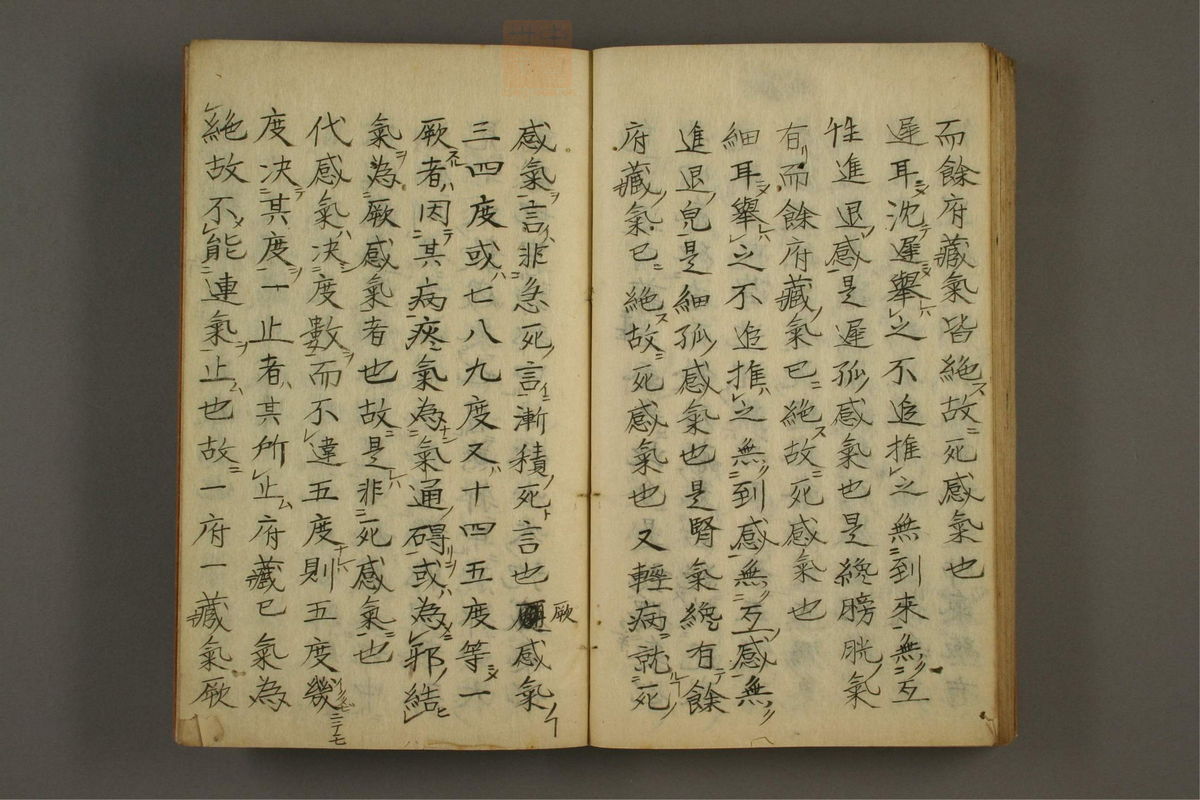 而餘府藏氣皆絶故死感氣也
遲耳沈遲舉之不追推之無到来無互
性進退感是遲孤感氣也是纔膀胱氣
有而餘府藏氣已絶故死感氣也
細耳舉之不追推之無到感無互感無
進退皃是細孤感氣也是腎氣纔有餘
府藏氣已絶故死感氣也又輕病就死
感氣言非急死言漸積死言也厥感氣
三四度或七八九度又十四五度等一
厥者因其病疼氣為氣通碍或為邪結
氣為厥感氣者也故是非死感氣也
代感氣決度數而不違五度則五度幾
度決其度一止者其所止府藏已氣為
絶故不能連氣止也故一府一藏氣厥